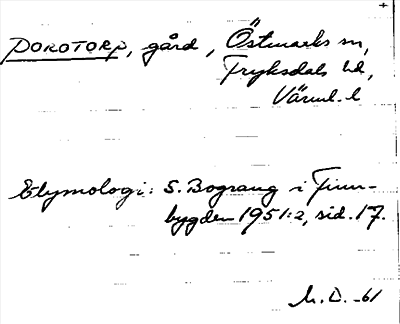 DOROTORP, gård, Östmarks sn,
Fryksdals hd,
Värml. l
Etymologi: S. Bograng i Finn-
bygden 1951:2, sid. 17.
M. D. -61